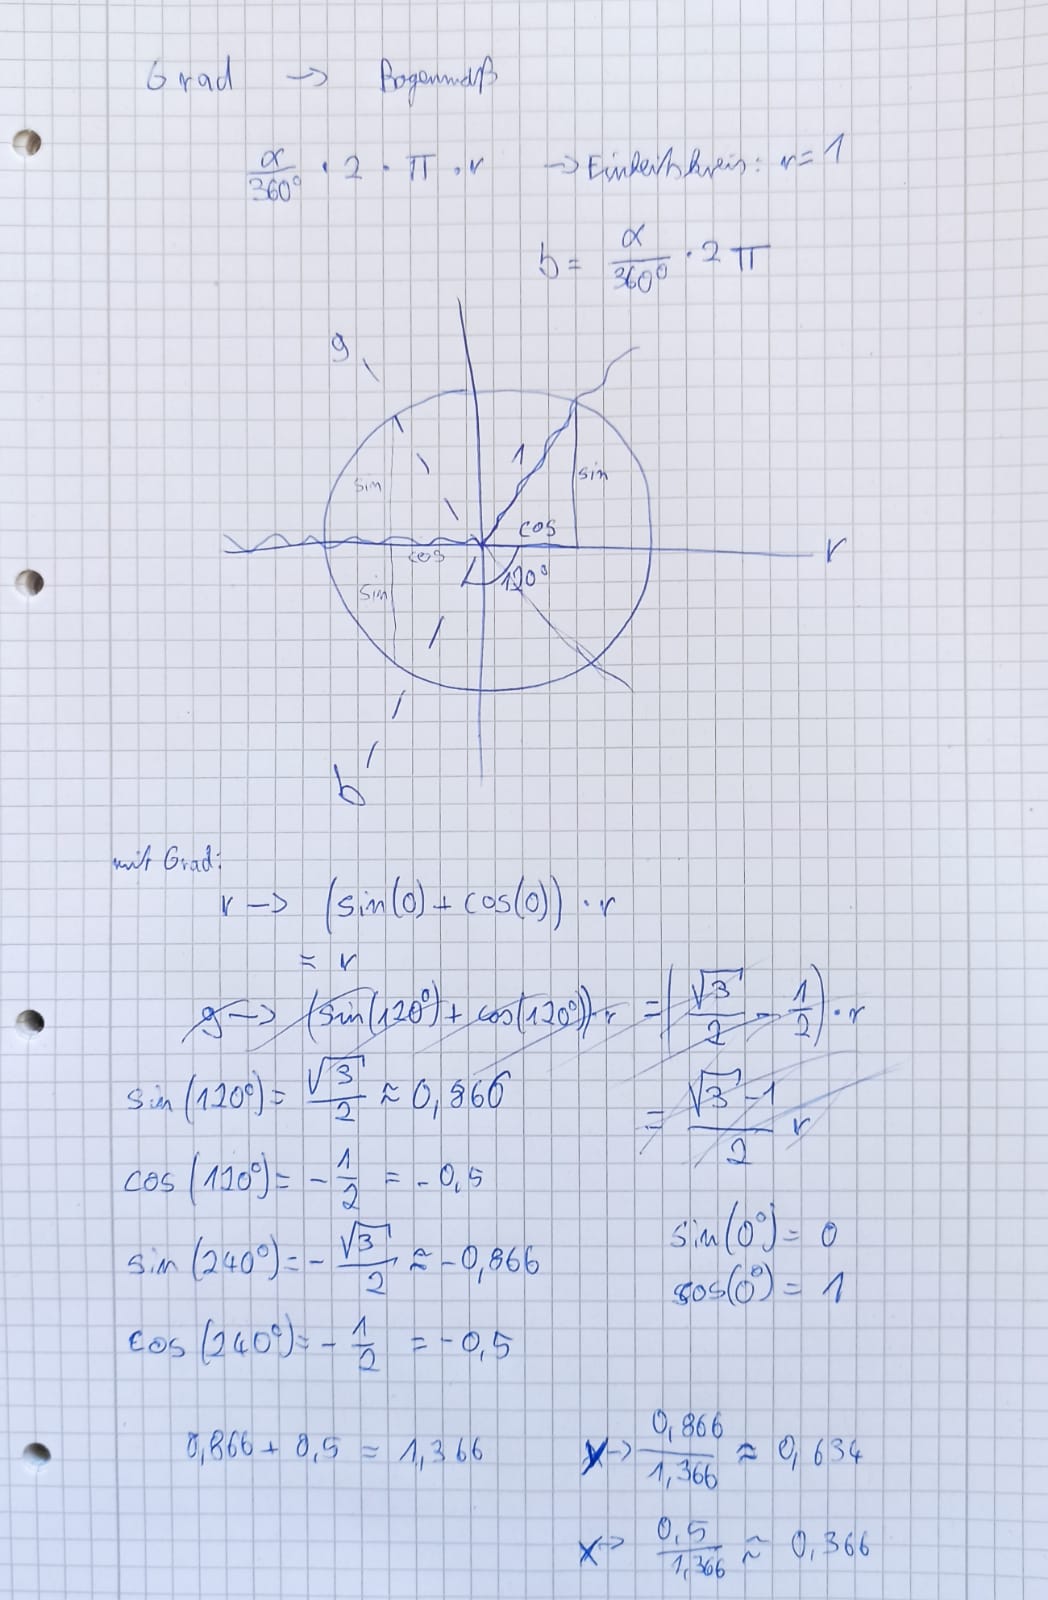 Grad → Bogenmaß
α/360° · 2 · π · r → Einheitskreis: r = 1
b = α/360° · 2 π
g
1
sin
sin
cos
cos
r
sin
120°
b
mit Grad:
r → (sin(0) + cos(0)) · r
= r
g → (sin(120°) + cos(120°)) · r = (√3/2 - 1/2) · r
sin (120°) = √3/2 ≈ 0,866
= √3 - 1/2 r
cos (120°) = - 1/2 = - 0,5
sin (0°) = 0
sin (240°) = - √3/2 ≈ - 0,866
cos (0°) = 1
cos (240°) = - 1/2 = - 0,5
0,866 + 0,5 = 1,366
y → 0,866/1,366 ≈ 0,634
x → 0,5/1,366 ≈ 0,366